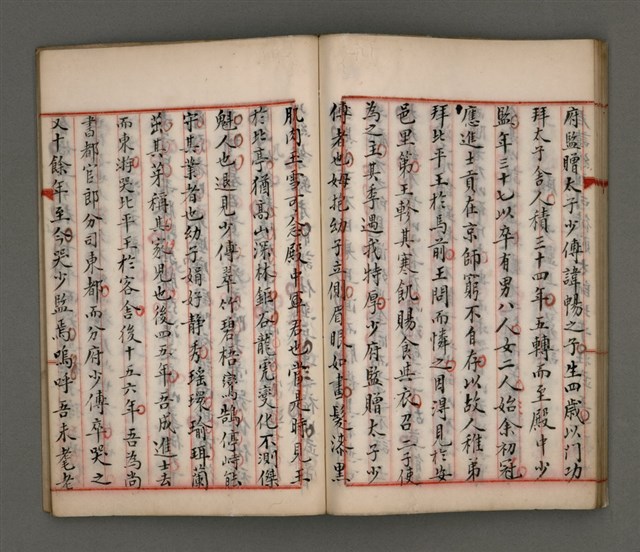 府監贈太子少傅諱暢之子生四歲以門功
拜太子舍人積三十四年五轉而至殿中少
監年三十七以卒有男八人女二人始余初冠
應進士貢在京師窮不自存以故人稚弟
拜北平王於馬前王問而憐之因得見於安
邑里第王軫其寒飢賜食與衣召二子使
為之主其季遇我特厚少府監贈太子少
傅者也姆抱幼子立側眉眼如畫髮漆黑
肌肉玉雪可念殿中軍君也當是時見王
於北亭猶高山深林鉅谷龍虎變化不測傑
魁人也退見少傅翠竹碧梧鸞鵠停峙能
守其業者也幼子娟好靜秀瑤環瑜珥蘭
茁其芽稱其家兒也後四五年吾成進士去
而東游哭北平王於客舍後十五六年吾為尚
書都官郎分司東都而分府少傅卒哭之
又十餘年至今哭少監焉嗚呼吾未耄老